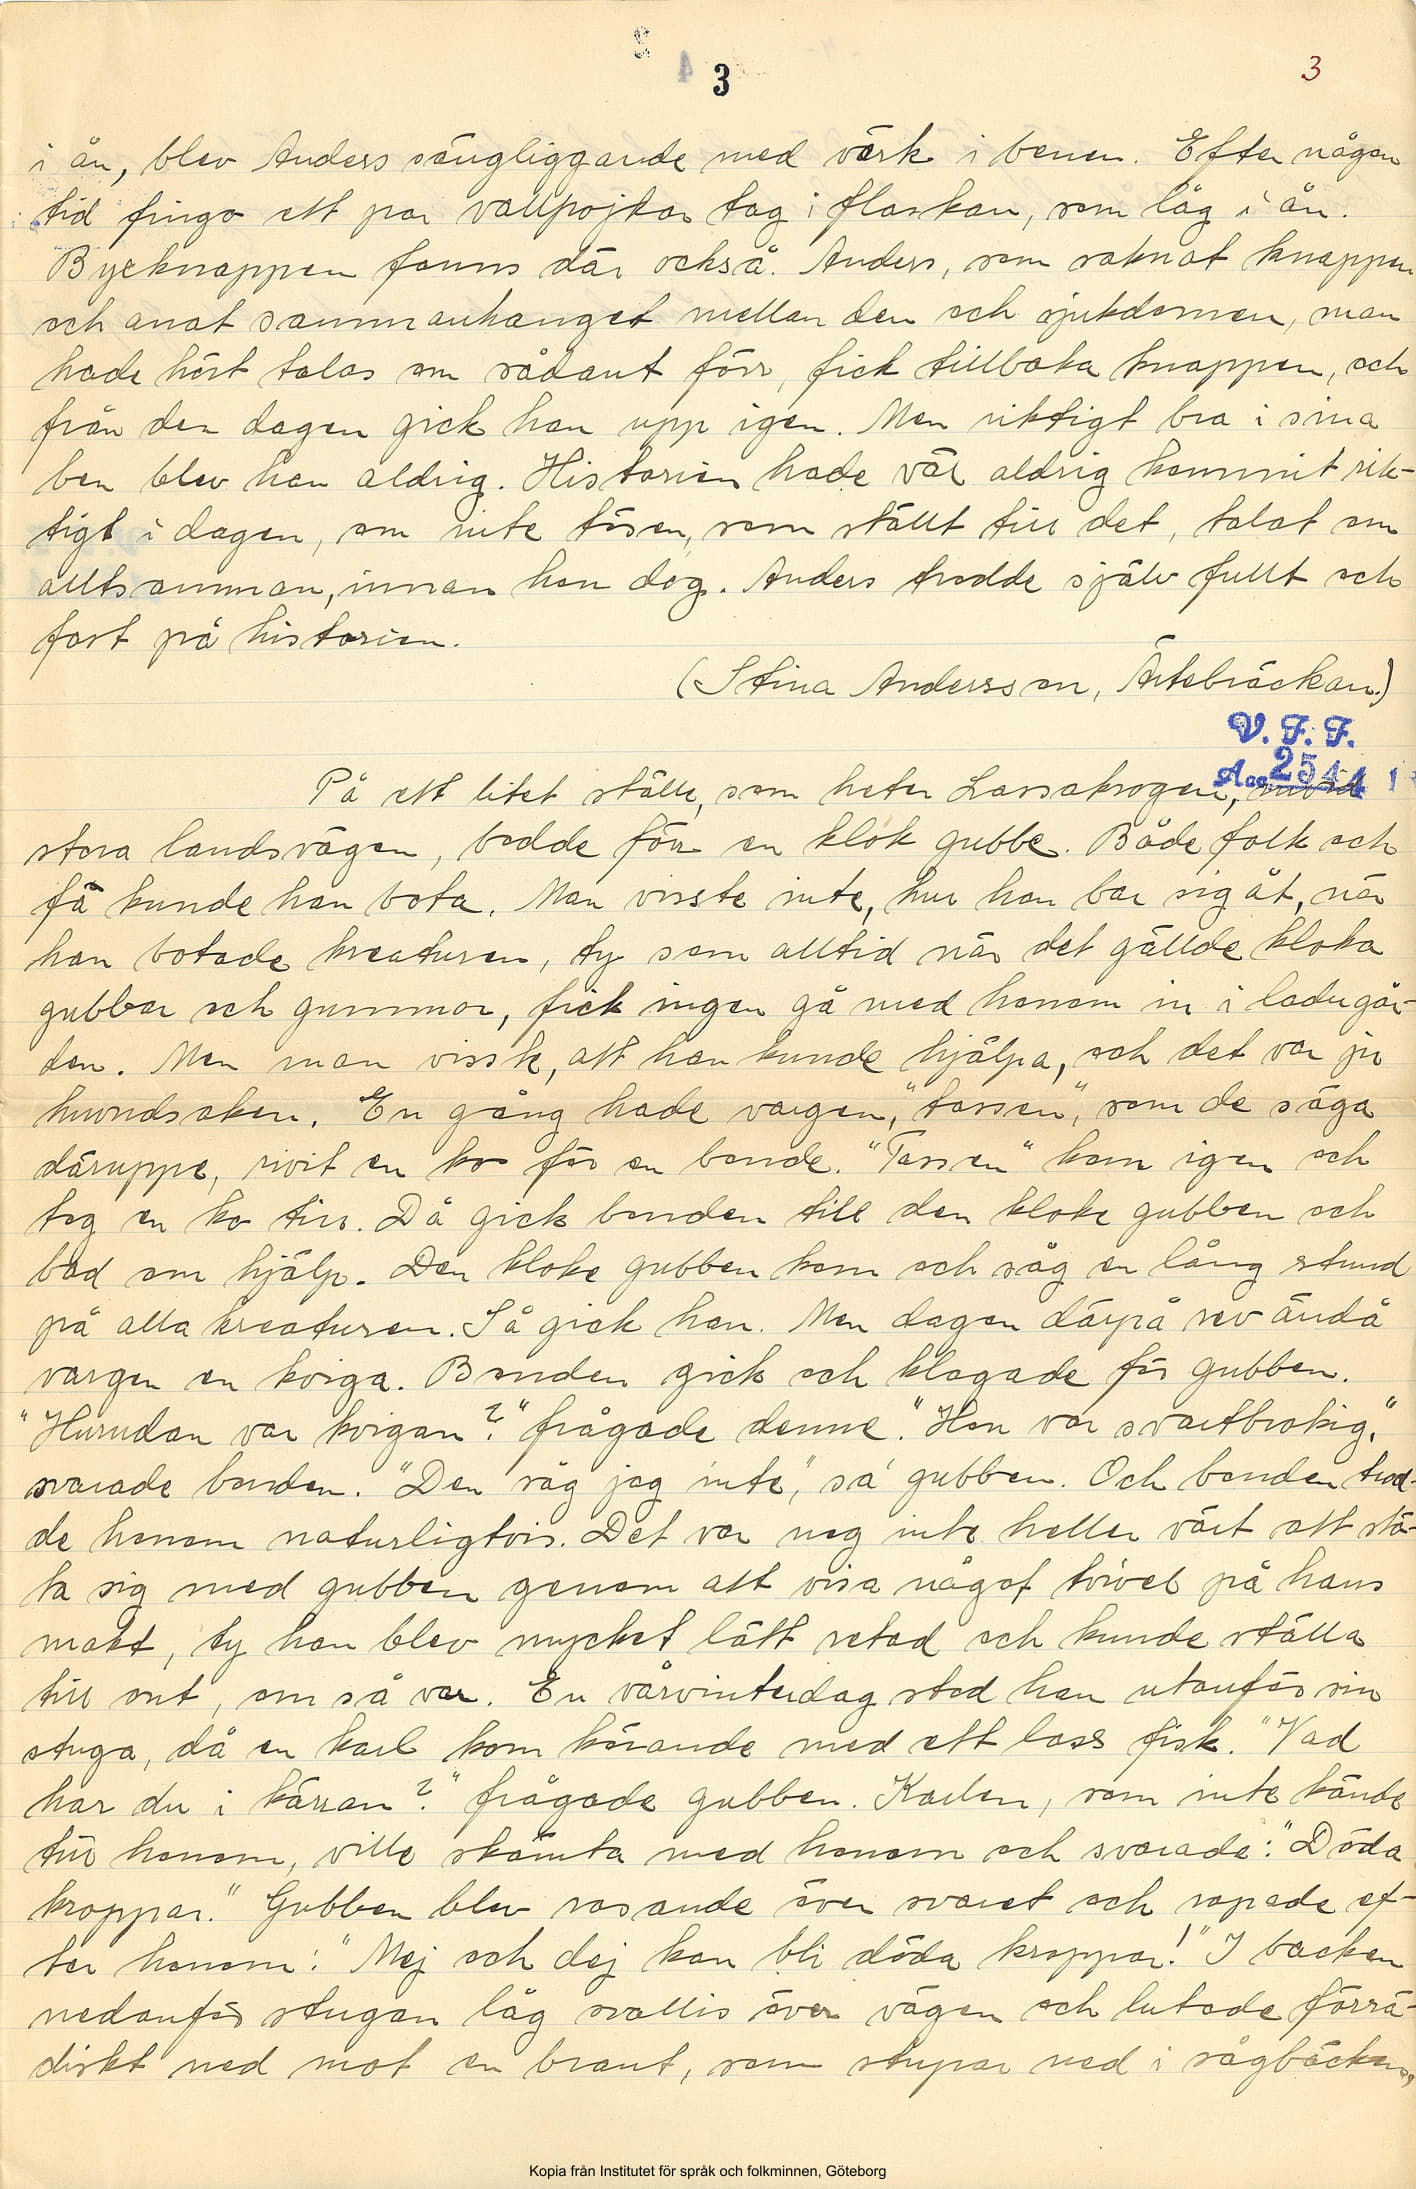 3
3
i ån, blev Anders sängliggande med värk i benen. Efter någon
tid fingo ett par vallpojkar tag i flaskan, som låg i ån.
Byxknappen fanns där också. Anders, som saknat knappen
och anat sammanhanget mellan den och sjukdomen, man
hade hört talas om sådant förr, fick tillbaka knappen, och
från den dagen gick han upp igen. Men riktigt bra i sina
ben blev han aldrig. Historien hade väl aldrig kommit rik-
tigt i dagen, om inte tösen, som ställt till det, talat om
alltsamman, innan hon dog. Anders trodde själv fullt och
fast på historien.
(Stina Andersson, Ärtebräckan.)
V. F. F.
Acc 2544
På ett litet ställe, som heter Lassakrogen,
stora landsvägen, bodde förr en klok gubbe. Både folk och
fä kunde han bota. Man visste inte, hur han bar sig åt, när
han botade kreaturen, ty som alltid när det gällde kloka
gubbar och gummor, fick ingen gå med honom in i ladugår-
den. Men man visste, att han kunde hjälpa, och det var ju
huvudsaken. En gång hade vargen, "tassen", som de säga
däruppe, rivit en ko för en bonde. "Tassen" kom igen och
tog en ko till. Då gick bonden till den kloke gubben och
bad om hjälp. Den kloke gubben kom och såg en lång stund
på alla kreaturen. Så gick han. Men dagen därpå rev ändå
vargen en kviga. Bonden gick och klagade för gubben.
"Hurudan var kvigan?" frågade denne. "Hon var svartbrokig,"
svarade bonden. "Den såg jag inte", sa' gubben. Och bonden trod-
de honom naturligtvis. Det var nog inte heller värt att stö-
ta sig med gubben genom att visa något tvivel på hans
makt, ty han blev mycket lätt retad och kunde ställa
till ont, om så var. En vårvinterdag stod han utanför sin
stuga, då en karl kom körande med ett lass fisk. "Vad
har du i kärran?" frågade gubben. Karlen, som inte kände
till honom, ville skämta med honom och svarade: "Döda
kroppar." Gubben blev rasande över svaret och ropade ef-
ter honom: "Mej och dej kan bli döda kroppar!" I backen
nedanför stugan låg svallis över vägen och lutade förrä-
diskt ned mot en brant, som stupar ned i sågbäcken,
Kopia från Institutet för språk och folkminnen, Göteborg